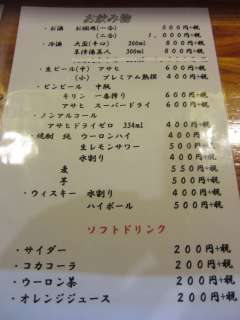 お飲み物
・お酒 お燗用(一合) 500円+税
(二合) 1,000円+税
・冷酒 大盃(辛口) 300ml 500円+税
300ml 800円+税
生ビール(中) アサヒ 600円+税
(小) プレミアム熟撰 400円+税
・ビンビール 中瓶
キリン 一番搾り 600円+税
アサヒ スーパードライ 600円+税
・ノンアルコール
アサヒドライゼロ 334ml 400円+税
・焼酎 純 ウーロンハイ 400円+税
生レモンサワー 500円+税
水割り 400円+税
麦 550円+税
芋 500円+税
・ウィスキー 水割り 400円+税
ハイボール 500円+税
ソフトドリンク
・サイダー 200円+税
・コカコーラ 200円+税
・ウーロン茶 200円+税
・オレンジジュース 200円+税